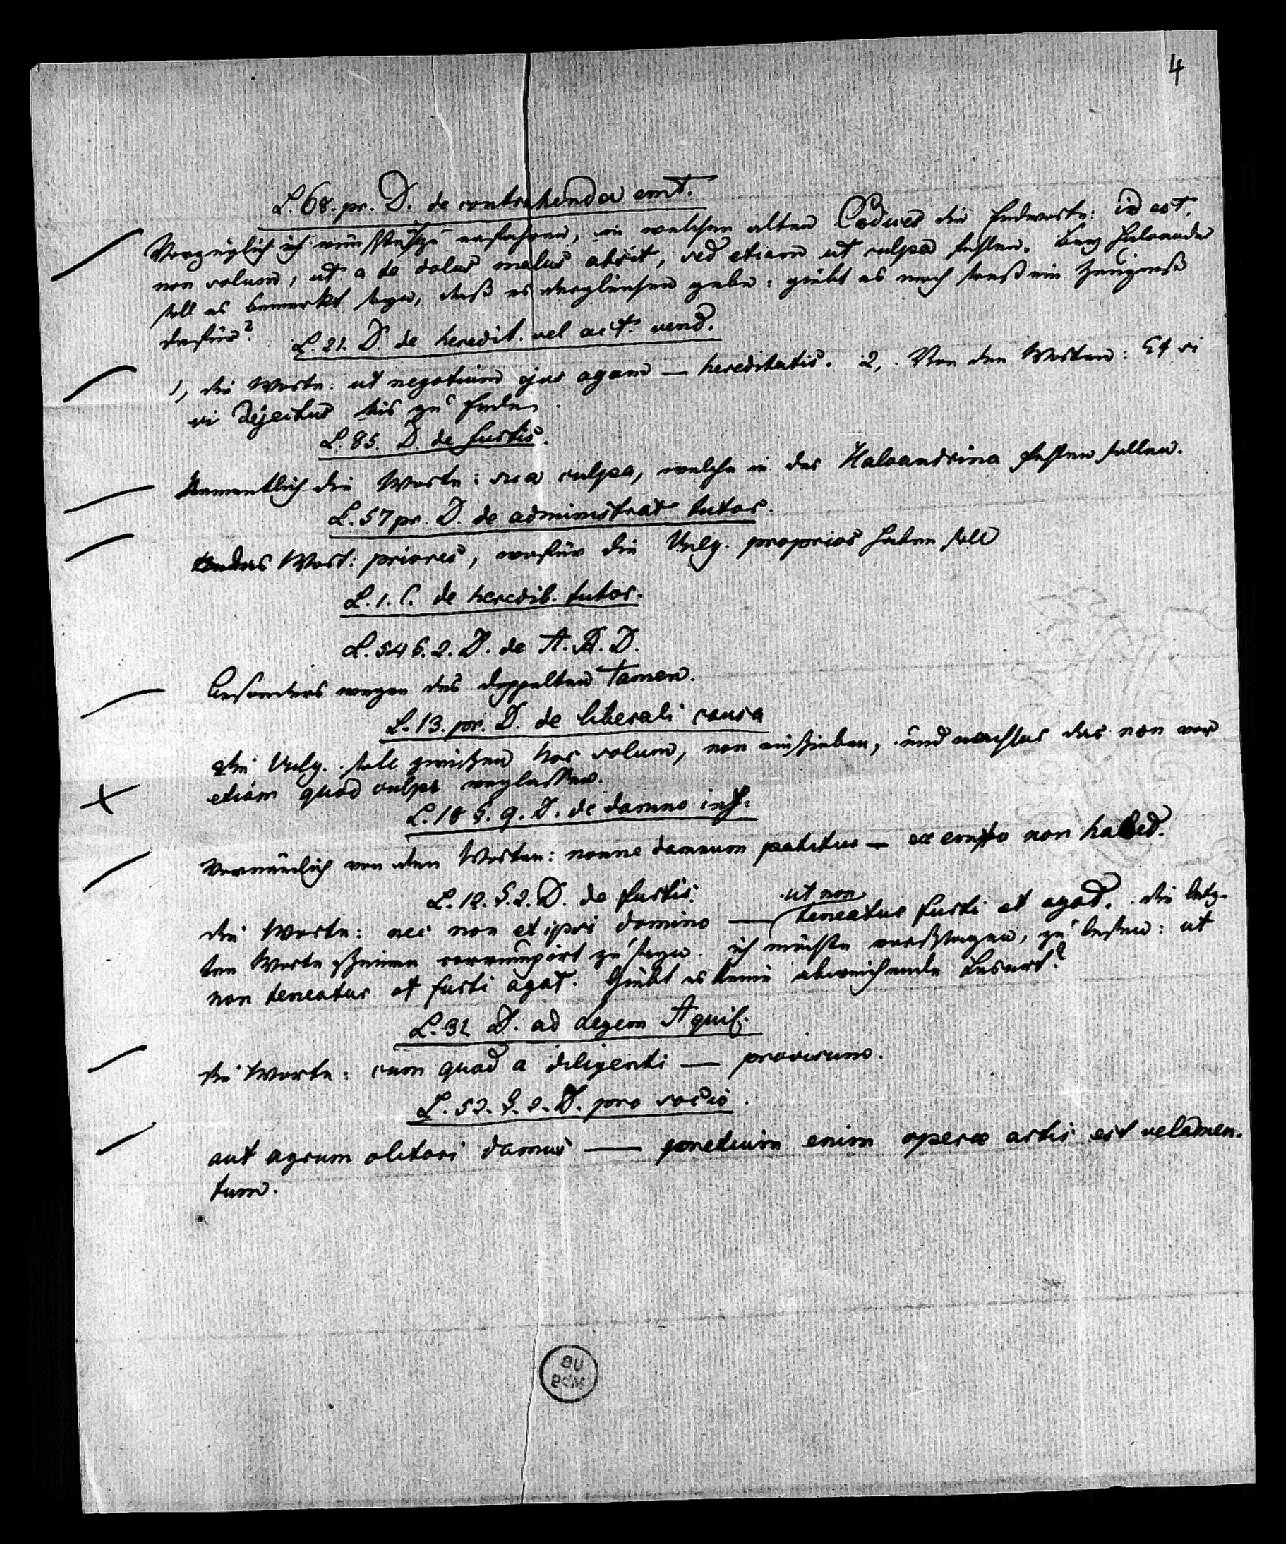 4
L. 68. pr. D. de contrahenda emt.
Vorzüglich ich wünschte zu erfahren, in welchen alten Codices die Endworte: id est,
non solum, ut a te dolus malus absit, sed etiam ut culpa fehlen. Bey Haloander
soll es bemerkt seyn, daß es dergleichen gebe: giebt es noch sonst ein Zeugniß
dafür?
L. 21. D. de heredit. vel act. vend.
1, die Worte: ut negotium ejus agam — hereditatis. 2, Von den Worten: Et si
vi dejectus bis zu Ende.
L. 85. D. de furtis.
Namentlich die Worte: sua culpa, welche in der Haloandrina fehlen sollen.
L. 57 pr. D. de administrat. tutor.
das Wort: priores, wofür die Vulg. proprios haben soll
L. 1. C. de heredib. tutor.
L. 54 §. 2. D. de A. R. D.
Besonders wegen des doppelten Tamen.
L. 13. pr. D. de liberali causa
die Vulg. soll zwischen hos solum, non einschieben, und nachher das non vor
etiam quod culpa weglassen.
L. 18 §. 9. D. de damno inf.
Vornämlich von den Worten: nonne damnum patitur — ex empto non habet.
L. 12. §. 2. D. de furtis.
ut non
die Worte: nec non et ipsi domino — teneatur furti et agat. die letz-
ten Worte scheinen corrumpirt zu seyn. ich möchte vorschlagen, zu lesen: ut
non teneatur et furti agat. Giebt es keine abweichende Lesart?
L. 31 D. ad Legem Aquil.
die Worte: cum quod a diligenti — provisum.
L. 52. §. 2. D. pro socio.
aut agrum politori damus — pretium enim operae artis est velamen-
tum.
BU